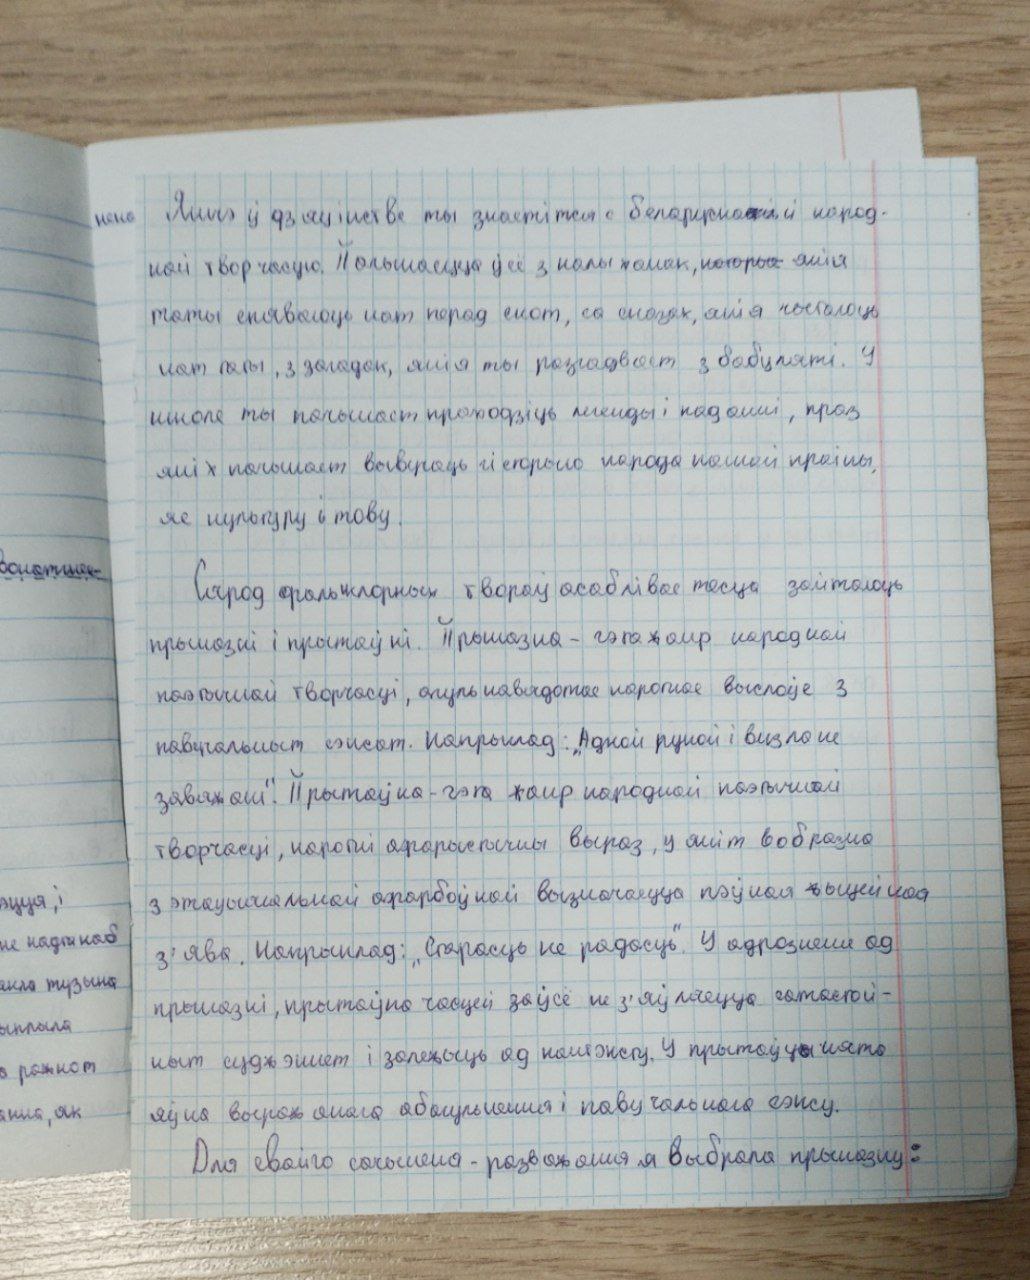 нена
Яшчэ ў дзяцінстве мы знаёмімся с беларускай народ-
най творчасцю. Пачынаецца ўсё з калыханак, которые якія
мамы спяваюць нам перад сном, са сказак, якія чытаюць
нам таты, з загадак, якія мы разгадваем з бабулямі. У
школе мы пачынаем праходзіць легенды і паданні, праз
якіх пачынаем вывучаць гісторыю народа нашай краіны,
яе культуру і мову.
Сярод фальклорных твораў асаблівае месца займаюць
прыказкі і прымаўкі. Прыказка - гэта жанр народнай
паэтычнай творчасці, агульнавядомае кароткае выслоўе з
павучальным сэнсам. Напрыклад: „Адной рукой і вузла не
завяжаш". Прымаўка - гэта жанр народнай паэтычнай
творчасці, кароткі афарыстычны выраз, у якім вобразна
з эмацыянальнай афарбоўкай вызначаецца пэўная жыццёвая
з'ява. Напрыклад: „Старасць не радасць". У адрозненне ад
прыказкі, прымаўка часцей заўсё не з'яўляецца самастой-
ным суджэннем і залежыць ад кантэксту. У прымаўцы няма
яўна выражанага абагульнення і павучальнага сэнсу.
Для свайго сачынення - разважання я выбрала прыказку:
вонатнае-
эцця, і
не надта каб
акла тузына
ыплыла
ражком
анна, як